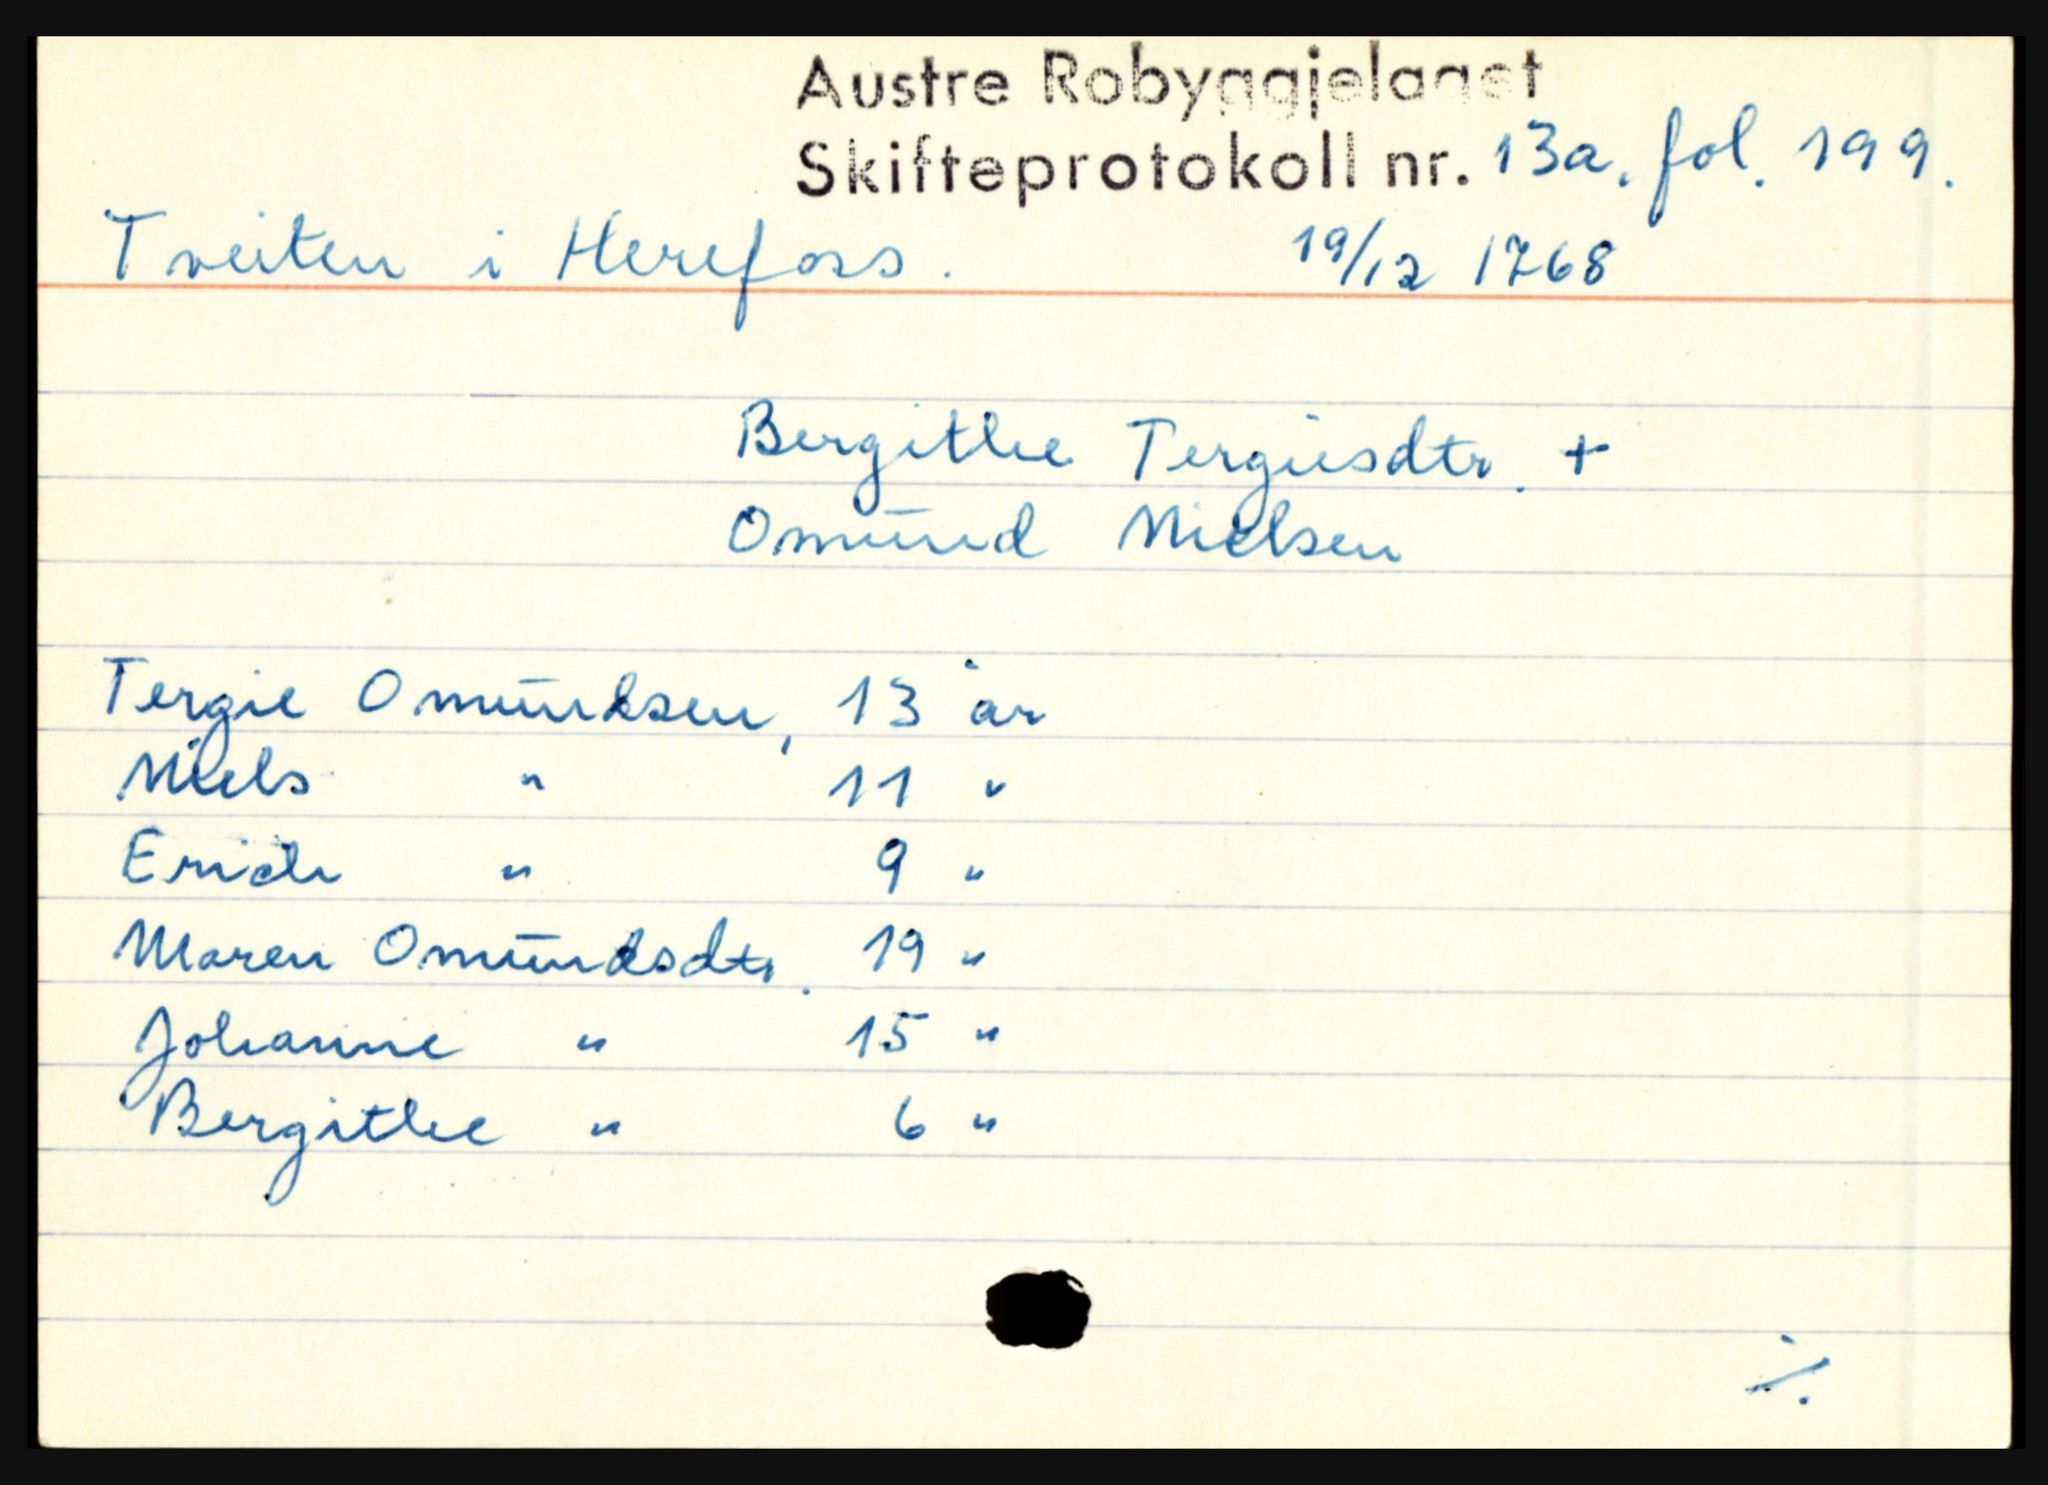 Austre Robyggjelaget
Skifteprotokoll nr. 13a. fol. 199.
Tveiten i Herefoss. 19/12 1768
Bergithe Tergiesdtr. +
Omund Nielsen
Tergie Omundsen, 13 år
Niels " 11 "
Erich " 9 "
Maren Omundsdtr. 19 "
Johanne " 15 "
Bergithe " 6 "
./.